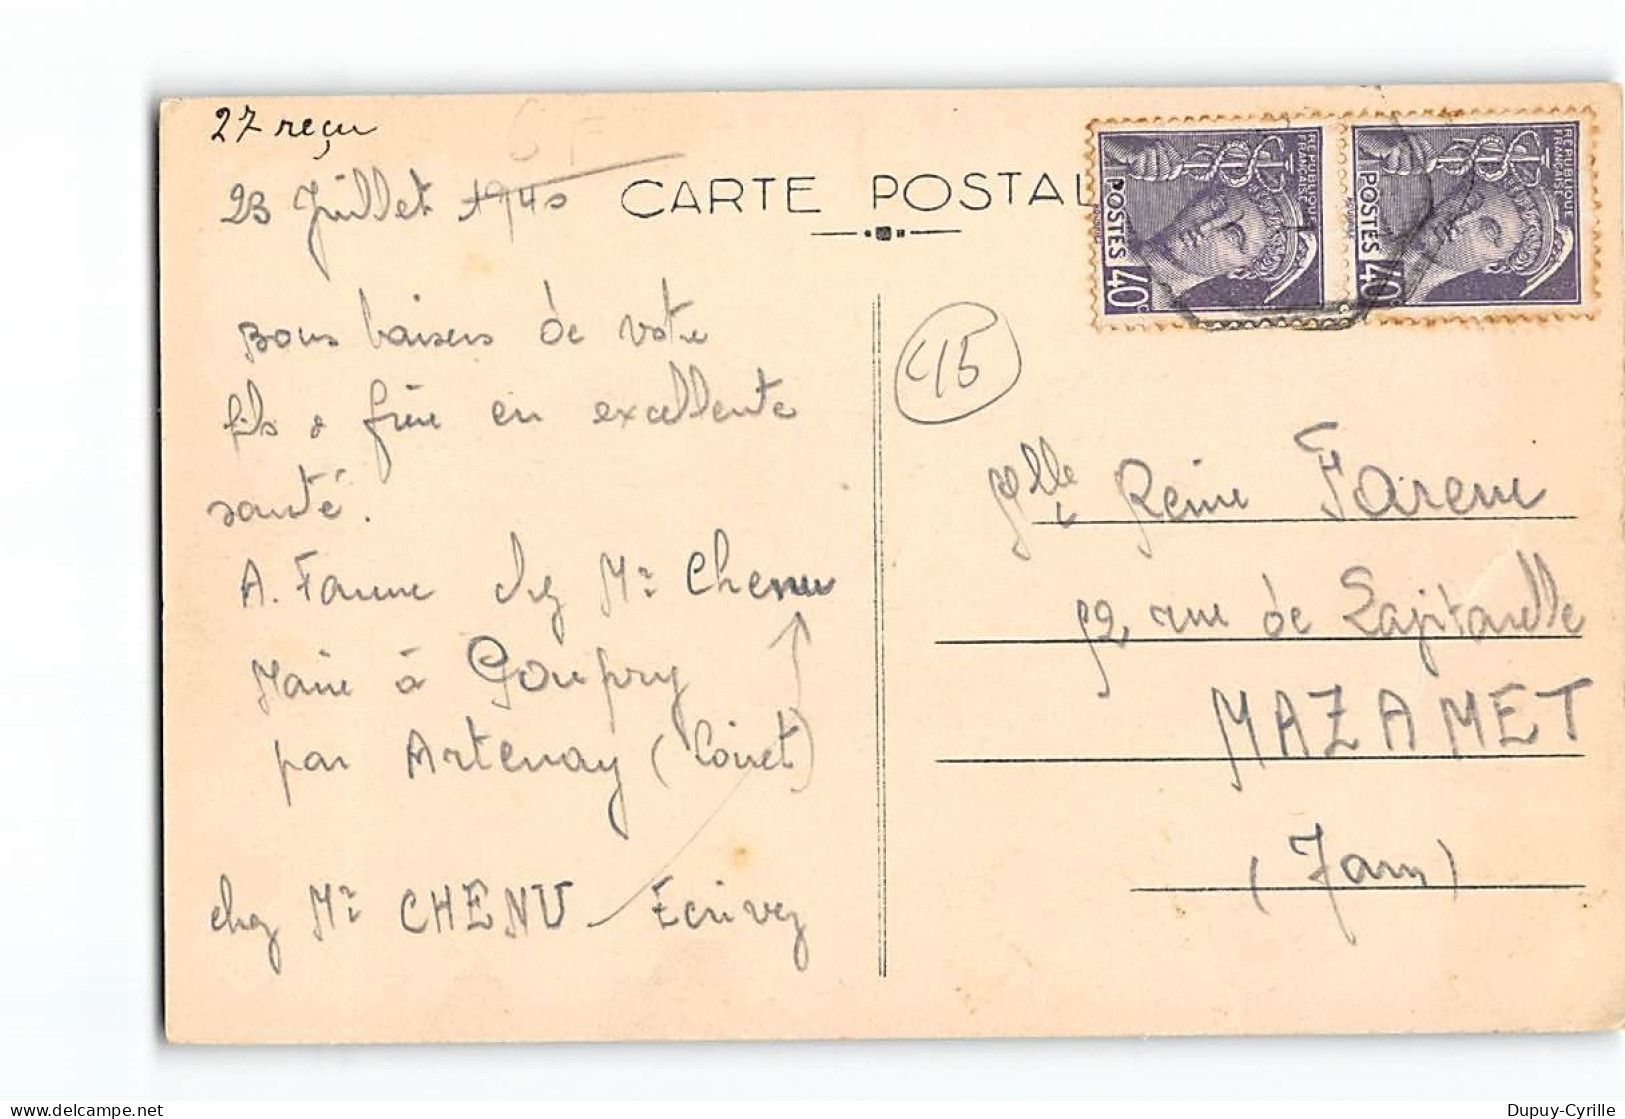 27 reçu
23 Juillet 1940
CARTE POSTAL
REPUBLIQUE
FRANCAISE
POSTES
40c
REPUBLIQUE
FRANCAISE
POSTES
40c
Bons baisers de votre
fils & frère en excellente
santé.
A. Farenc chez Mr Chenu
Maire à Goupry
par Artenay (Loiret)
chez Mr CHENU Ecrivez
45
Mlle Reine Farenc
52 rue de Lapitarelle
MAZAMET
(Tarn)
Dupuy-Cyrille